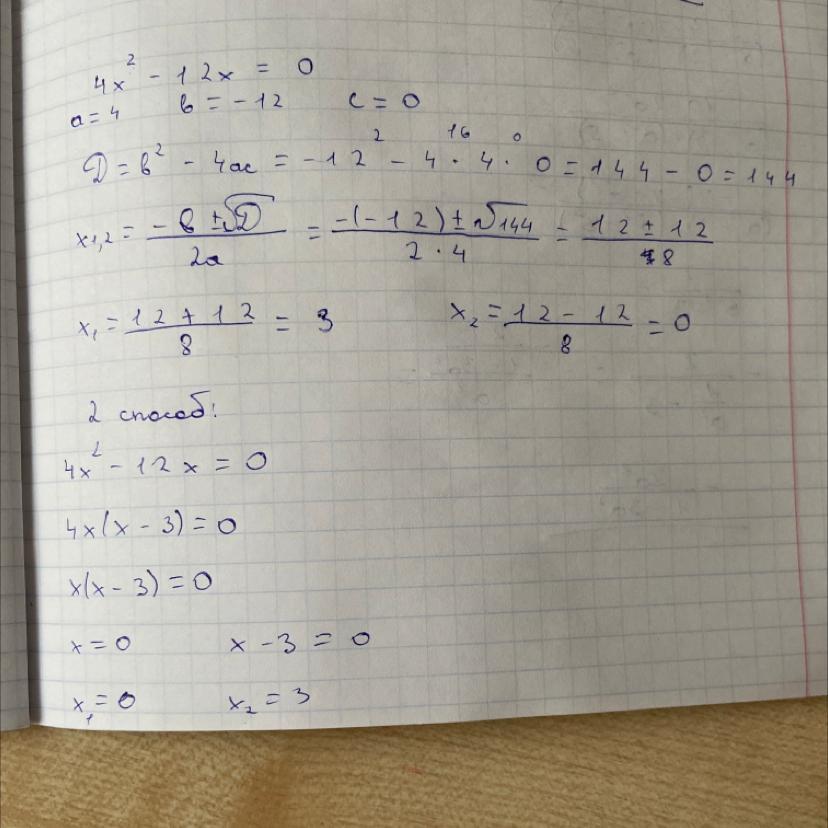 4x² - 12x = 0
a = 4 в = -12 c = 0
D = в² - 4ac = -12² - 4 · 4 · 0 = 144 - 0 = 144
16 0
x1,2 = (-в ± √D)/(2a) = (-(-12) ± √144)/(2 · 4) = (12 ± 12)/8
x₁ = (12 + 12)/8 = 3 x₂ = (12 - 12)/8 = 0
2 способ:
4x² - 12x = 0
4x(x - 3) = 0
x(x - 3) = 0
x = 0 x - 3 = 0
x₁ = 0 x₂ = 3